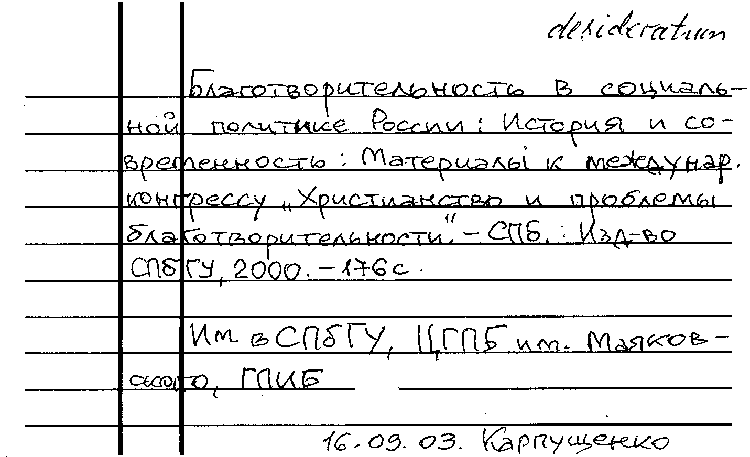 desideratum
Благотворительность в социаль-
ной политике России: История и со-
временность: Материалы к междунар.
конгрессу „Христианство и проблемы
благотворительности". – СПб.: Изд-во
СПбГУ, 2000. – 176 с.
Им. в СПбГУ, ЦГПБ им. Маяков-
ского, ГПИБ
16.09.03. Карпущенко